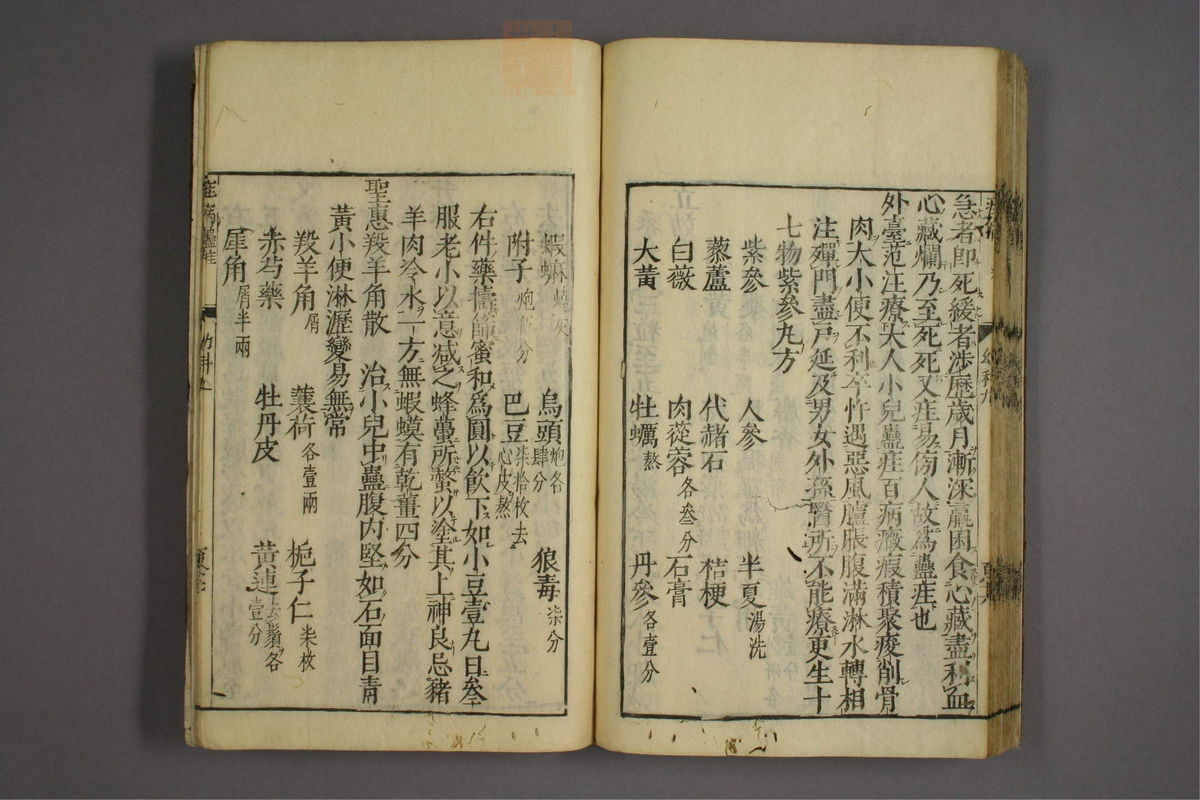 急者即死緩者涉歷歲月漸深羸困食心藏盡利血
心藏爛乃至死死又疰易傍人故為蠱疰也
外臺范汪療大人小兒蠱疰百病癥瘕積聚痠削骨
肉大小便不利卒忤遇惡風臚脹腹滿淋水轉相
注殫門盡戸延及男女外孫醫所不能療更生十
七物紫參丸方
紫參 人參 半夏湯洗
藜蘆 代赭石 桔梗
白薇 肉蓯蓉各叁分 石膏
大黃 牡蠣熬 丹參各壹分
蝦蟆燒灰 烏頭炮各肆分 狼毒柒分
附子炮分 巴豆柒拾枚去心皮熬
右件藥擣篩蜜和為圓以飲下如小豆壹丸日叁
服老小以意減之蜂蠆所螫以塗其上神良忌豬
羊肉冷水一方無蝦蟆有乾薑四分
聖惠羖羊角散 治小兒中蠱腹内堅如石面目青
黃小便淋瀝變易無常
羖羊角屑 蘘荷各壹兩 梔子仁柒枚
赤芍藥 牡丹皮 黃連去鬚各壹分
犀角屑半兩